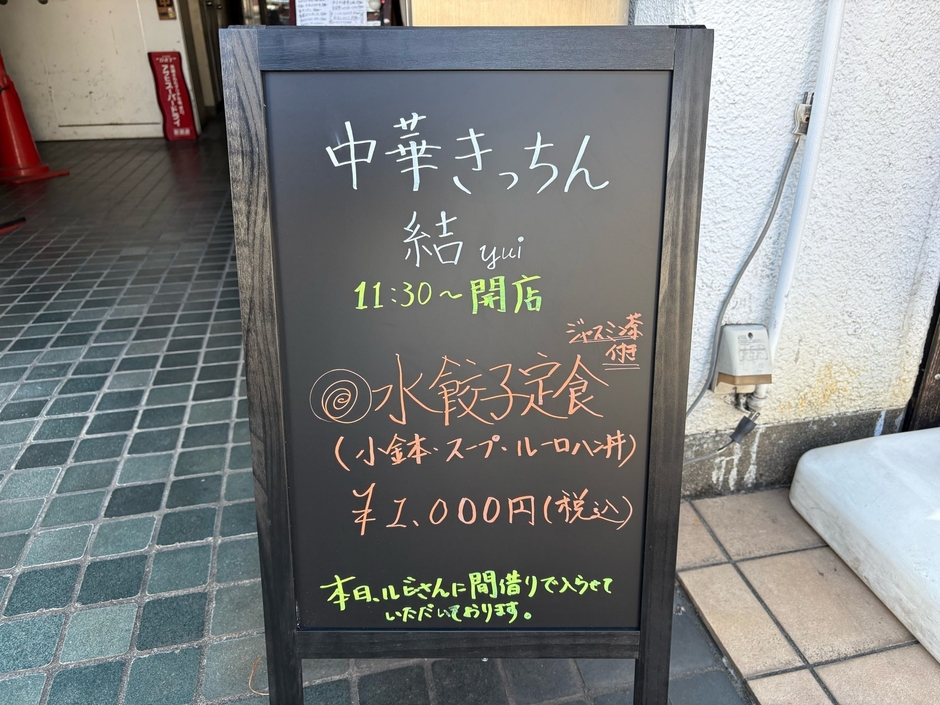 中華きっちん
結 yui
11:30～開店
ジャスミン茶
付き
水餃子定食
(小鉢・スープ・ルーロハン丼)
¥1,000円(税込)
本日、ルビさんに間借りで入らせて
いただいております。
アサヒスーパードライ